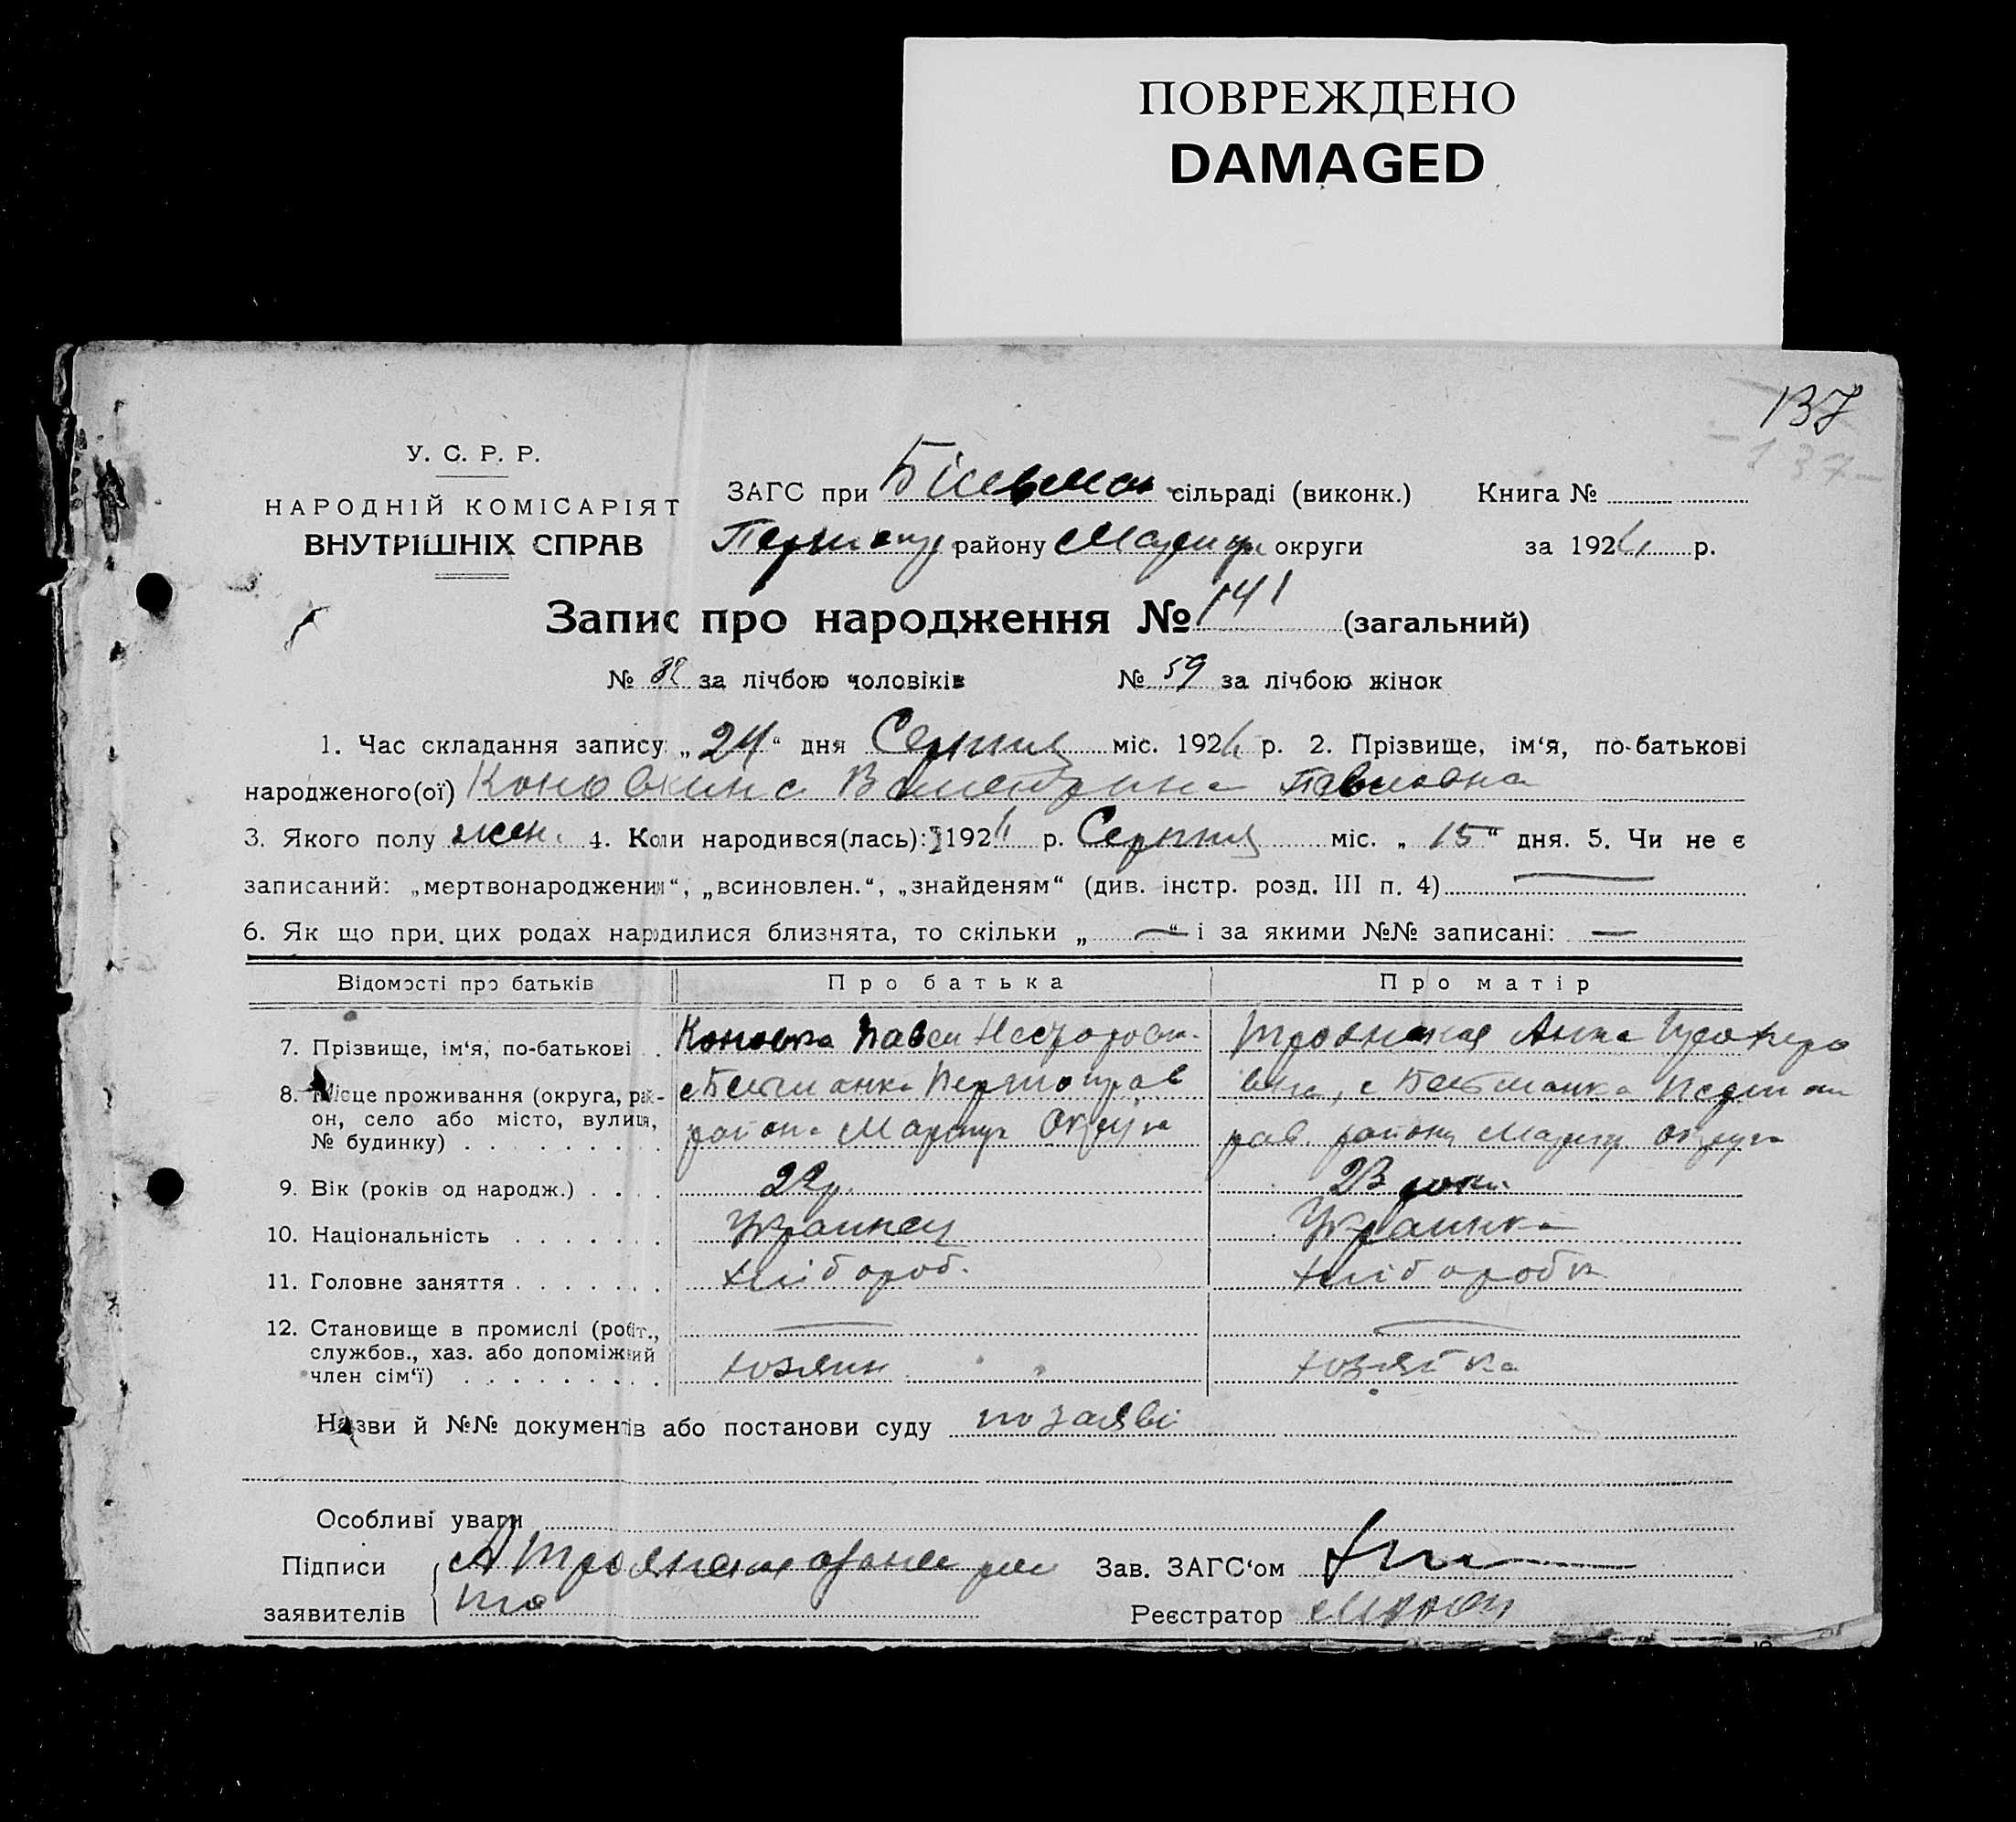 ПОВРЕЖДЕНО
DAMAGED
137
137
У. С. Р. Р.
НАРОДНІЙ КОМІСАРІЯТ
ВНУТРІШНІХ СПРАВ
ЗАГС при сільраді (виконк.) Книга №
району округи за 192 р.
Запис про народження № 141 (загальний)
№ 82 за лічбою чоловіків № 59 за лічбою жінок
1. Час складання запису: „24“ дня Серпня міс. 192 р. 2. Прізвище, ім‘я, по-батькові
народженого(ої) Павловна
3. Якого полу жен. 4. Коли народився(лась): 192 р. Серпня міс. „15“ дня. 5. Чи не є
записаний: „мертвонародженим“, „всиновлен.“, „знайденям“ (див. інстр. розд. III п. 4) —
6. Як що при цих родах народилися близнята, то скільки „—“ і за якими №№ записані: —
Відомості про батьків Про батька Про матір
7. Прізвище, ім‘я, по-батькові . . Коновка Павел Анна
8. Місце проживання (округа, рай-
он, село або місто, вулиця,
№ будинку) . . . . . . . . . района Округа району округа
9. Вік (років од народж.) . . . . 22р. 23 роки
10. Національність . . . . . . . Украинец Украинка
11. Головне заняття . . . . . . . хлібороб. хліборобка
12. Становище в промислі (робіт.,
службов., хаз. або допоміжний
член сім‘ї) . . . . . . . . . хозяин хозяйка
Назви й №№ документів або постанови суду по заяві
Особливі уваги
Підписи Зав. ЗАГС‘ом
заявителів Реєстратор